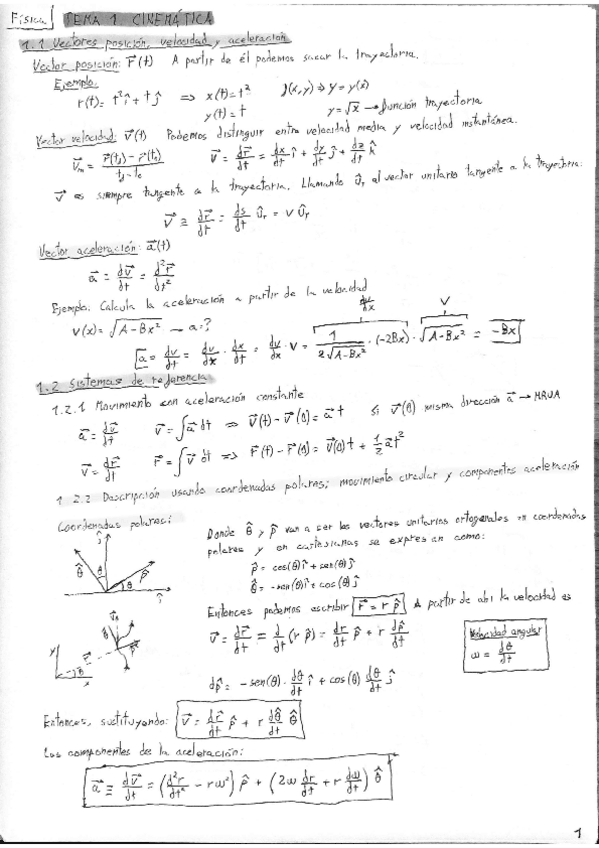 Física TEMA 1 CINEMÁTICA
1.1 Vectores posición, velocidad y aceleración
Vector posición: r⃗(t) A partir de él podemos sacar la trayectoria.
Ejemplo:
r(t) = t² î + t ĵ ⇒ x(t) = t² f(x,y) ⇒ y = y(x)
y(t) = t y = √x → función trayectoria
Vector velocidad: v⃗(t) Podemos distinguir entre velocidad media y velocidad instantánea.
v⃗ₘ = (r⃗(t₁) - r⃗(t₀))/(t₁ - t₀) v⃗ = dr⃗/dt = dx/dt î + dy/dt ĵ + dz/dt k̂
v⃗ es siempre tangente a la trayectoria. Llamando ûᵣ al vector unitario tangente a la trayectoria:
v⃗ ≡ dr⃗/dt = ds/dt ûᵣ = v ûᵣ
Vector aceleración: a⃗(t)
a⃗ = dv⃗/dt = d²r⃗/dt²
Ejemplo: Calcula la aceleración a partir de la velocidad
dv/dx v
v(x) = √(A - Bx²) → a = ?
a = dv/dt = dv/dx · dx/dt = dv/dx · v = 1/(2√(A - Bx²)) · (-2Bx) · √(A - Bx²) = -Bx
1.2 Sistemas de referencia
1.2.1 Movimiento con aceleración constante
a⃗ = dv⃗/dt v⃗ = ∫ a⃗ dt ⇒ v⃗(t) - v⃗(0) = a⃗ t Si v⃗(0) misma dirección a⃗ → MRUA
v⃗ = dr⃗/dt r⃗ = ∫ v⃗ dt ⇒ r⃗(t) - r⃗(0) = v⃗(0) t + ½ a⃗t²
1.2.2 Descripción usando coordenadas polares; movimiento circular y componentes aceleración
Coordenadas polares:
ĵ θ̂ θ ρ̂ θ î
Donde θ̂ y ρ̂ van a ser los vectores unitarios ortogonales en coordenadas
polares y en cartesianas se expresan como:
ρ̂ = cos(θ) î + sen(θ) ĵ
θ̂ = -sen(θ) î + cos(θ) ĵ
Entonces podemos escribir r⃗ = r ρ̂ A partir de ahí la velocidad es
v⃗ = dr⃗/dt = d/dt (r ρ̂) = dr/dt ρ̂ + r dρ̂/dt
Velocidad angular
ω = dθ/dt
y x
dρ̂ = -sen(θ) · dθ/dt î + cos(θ) dθ/dt ĵ
Entonces, sustituyendo: v⃗ = dr⃗/dt ρ̂ + r dθ̂/dt θ̂
Las componentes de la aceleración:
a⃗ ≡ dv⃗/dt = (d²r/dt² - rω²) ρ̂ + (2ω dr/dt + r dω/dt) θ̂
1